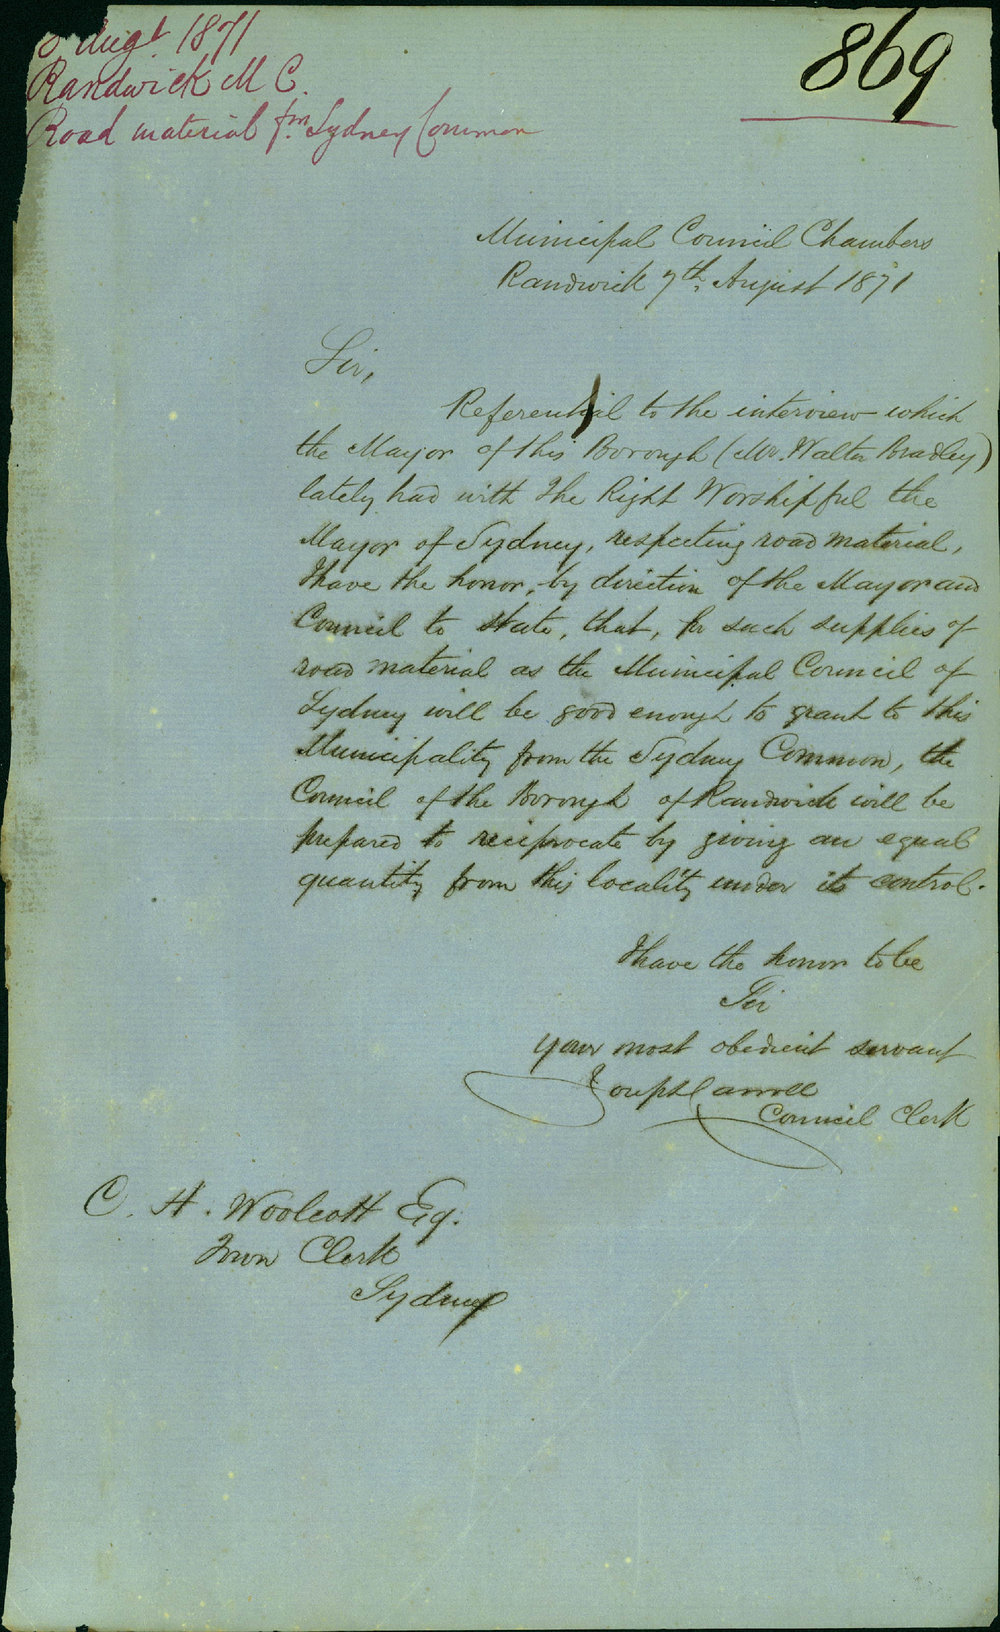 Augt 1871
Randwick M C.
Road material fm Sydney Common
869
Municipal Council Chambers
Randwick 7th August 1871
Sir,
Referential to the interview which
the Mayor of this Borough (Mr. Walter Bradley)
lately had with the Right Worshipful the
Mayor of Sydney, respecting road material,
I have the honor, by direction of the Mayor and
Council to state, that, for such supplies of
road material as the Municipal Council of
Sydney will be good enough to grant to this
Municipality from the Sydney Common, the
Council of the Borough of Randwick will be
prepared to reciprocate by giving an equal
quantity from this locality under its control.
I have the honor to be
Sir
your most obedient servant
Joseph Carroll
Council Clerk
C. H. Woolcott Esq.
Town Clerk
Sydney